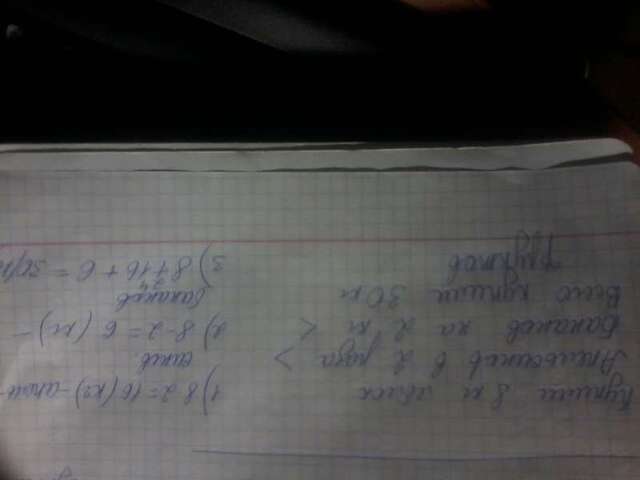 Купили 8 кг яблок
Апельсинов в 2 раза >
Бананов на 2 кг <
Всего купили 30 кг
фруктов
1) 8 2 = 16 (кг) - апель-
синов
2) 8 - 2 = 6 (кг) -
бананов
3) 8 + 16 + 6 = 30 (кг
24